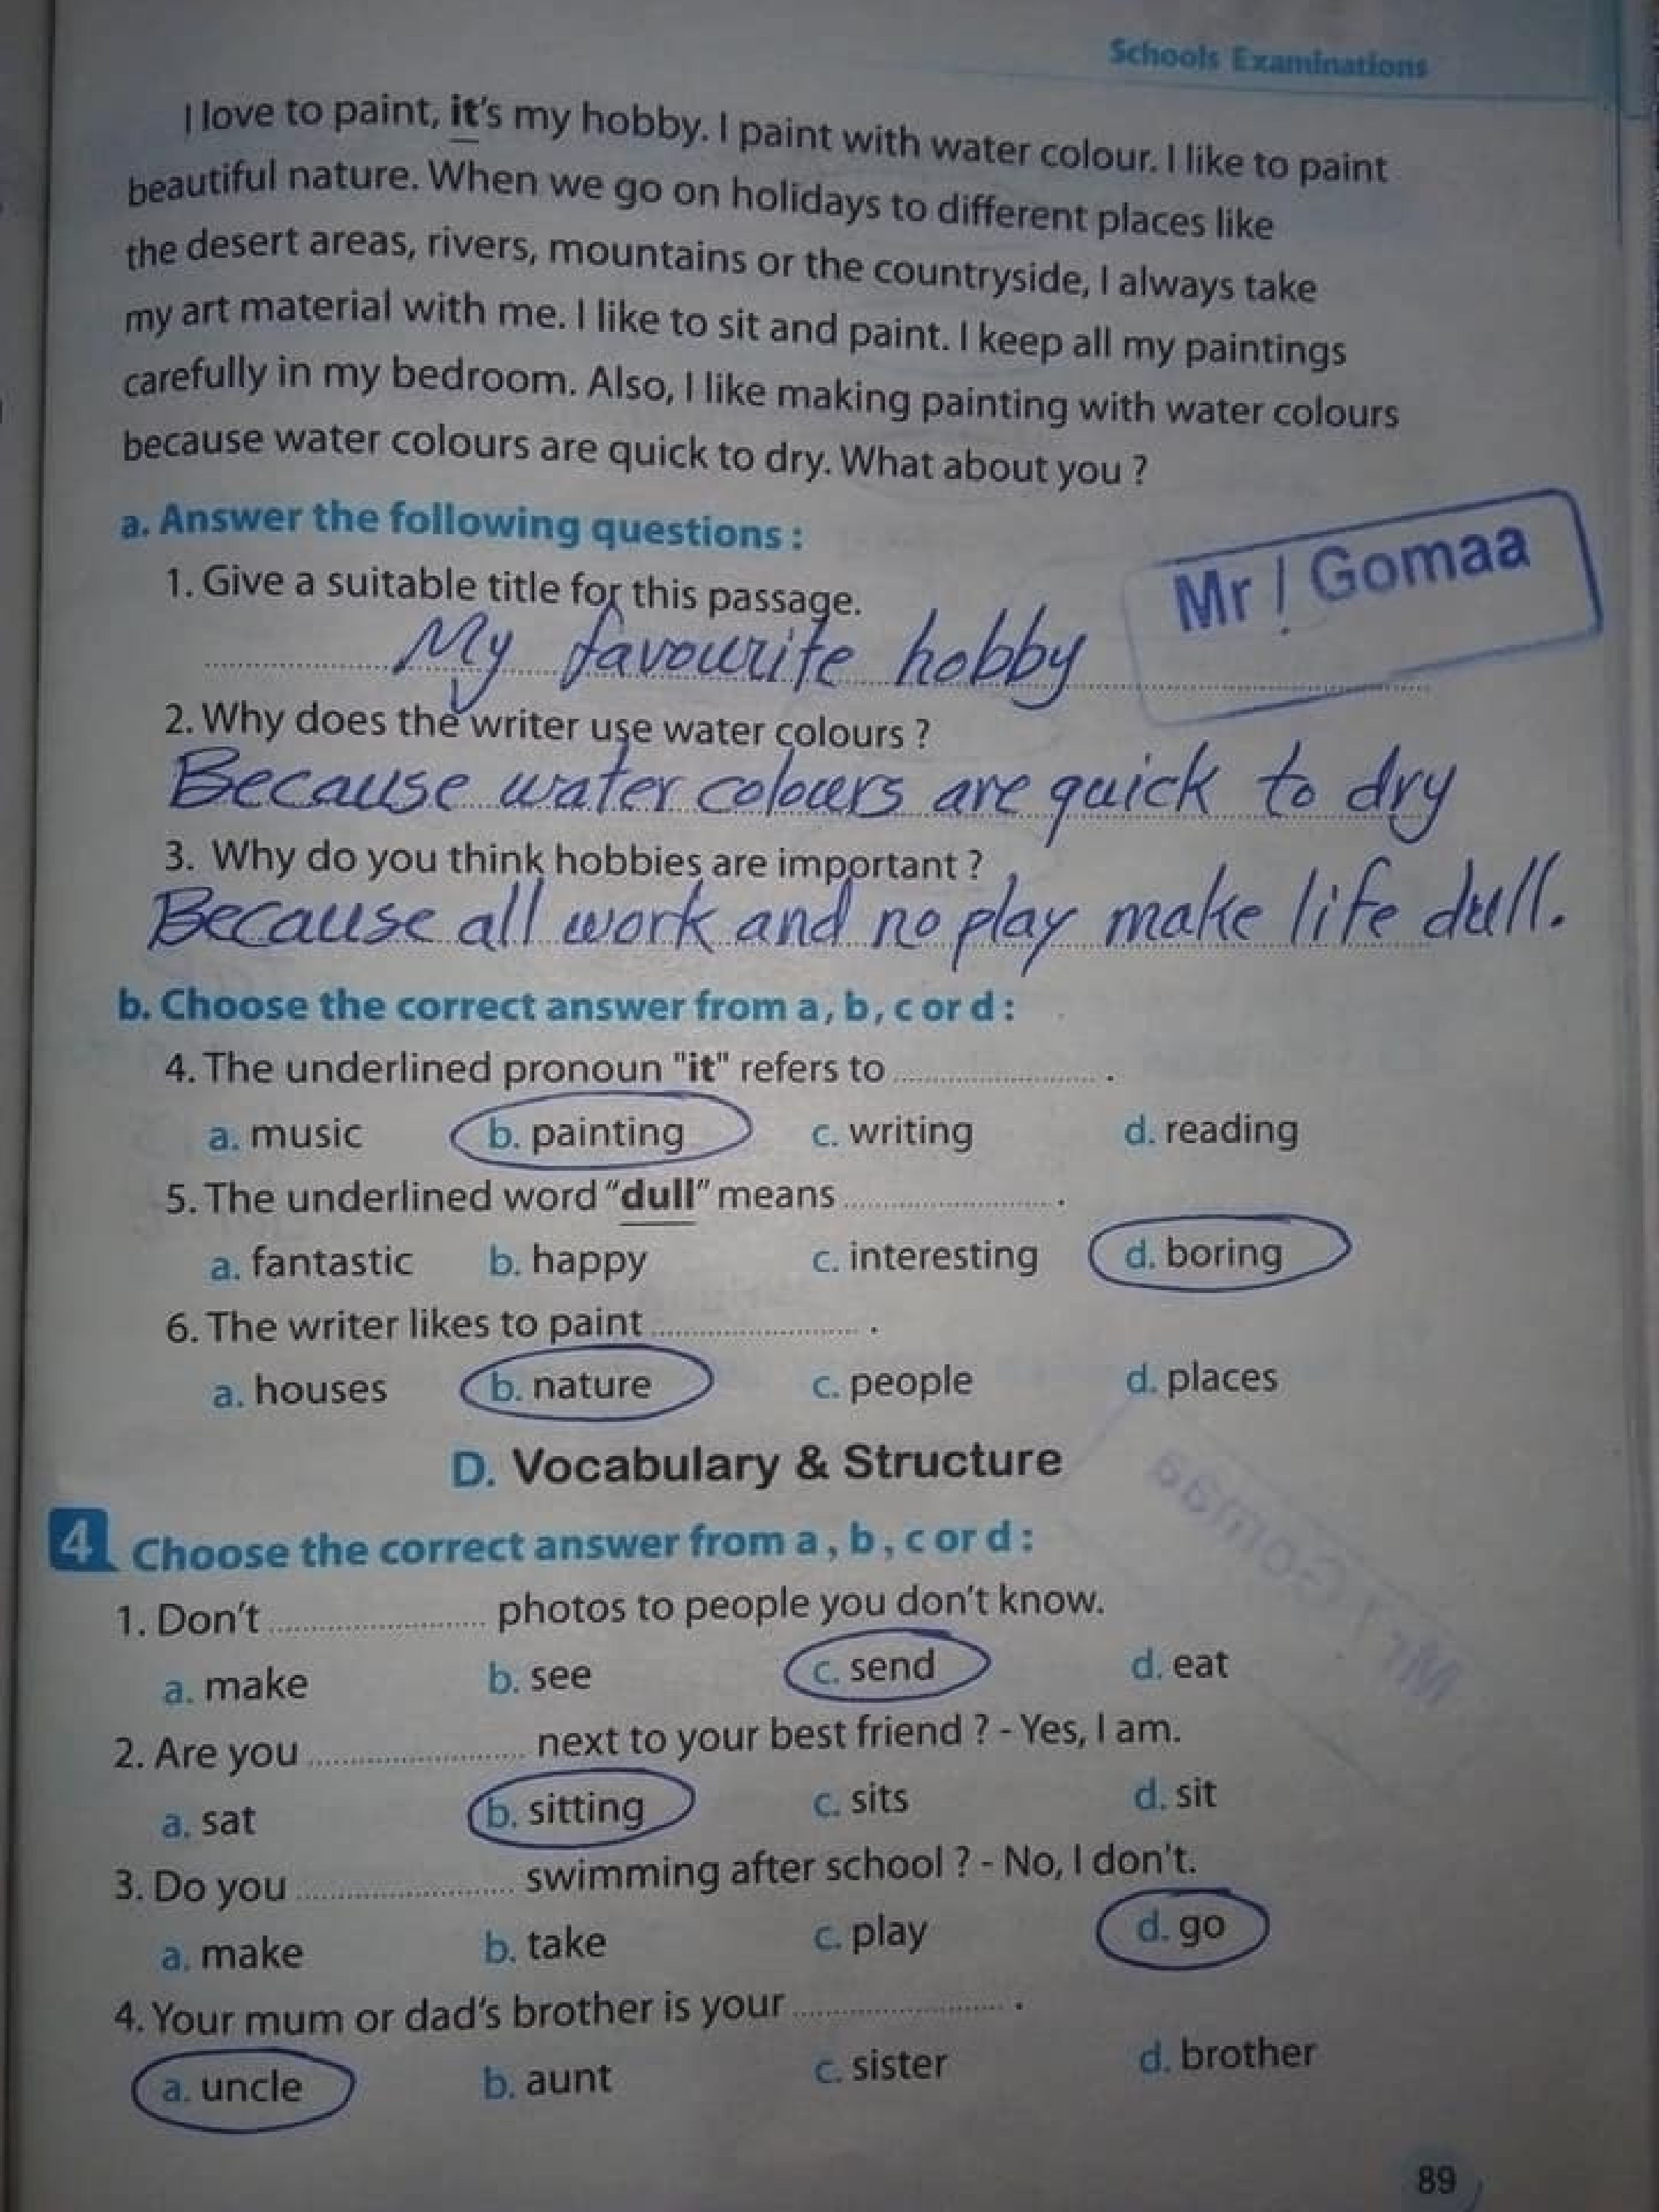 Schools Examinations
I love to paint, it's my hobby. I paint with water colour. I like to paint
beautiful nature. When we go on holidays to different places like
the desert areas, rivers, mountains or the countryside, I always take
my art material with me. I like to sit and paint. I keep all my paintings
carefully in my bedroom. Also, I like making painting with water colours
because water colours are quick to dry. What about you ?
a. Answer the following questions :
Mr / Gomaa
1. Give a suitable title for this passage.
My favourite hobby
2. Why does the writer use water colours ?
Because water colours are quick to dry
3. Why do you think hobbies are important ?
Because all work and no play make life dull.
b. Choose the correct answer from a, b, c or d :
4. The underlined pronoun "it" refers to .................... .
a. music b. painting c. writing d. reading
5. The underlined word "dull" means .................... .
a. fantastic b. happy c. interesting d. boring
6. The writer likes to paint .................... .
a. houses b. nature c. people d. places
D. Vocabulary & Structure
4 Choose the correct answer from a, b, c or d :
1. Don't .................... photos to people you don't know.
a. make b. see c. send d. eat
2. Are you .................... next to your best friend ? - Yes, I am.
a. sat b. sitting c. sits d. sit
3. Do you .................... swimming after school ? - No, I don't.
a. make b. take c. play d. go
4. Your mum or dad's brother is your .................... .
a. uncle b. aunt c. sister d. brother
Mr / Gomaa
89